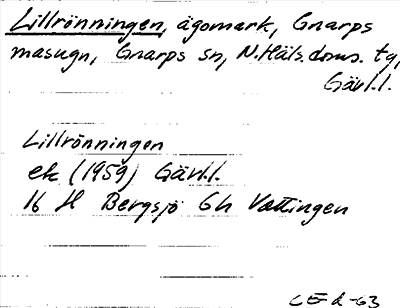 Lillrönningen, ägomark, Gnarps
masugn, Gnarps sn, N.Häls.doms. tg,
Gävl.l.
Lillrönningen
ek (1959) Gävl.l.
16 H Bergsjö 6h Vattingen